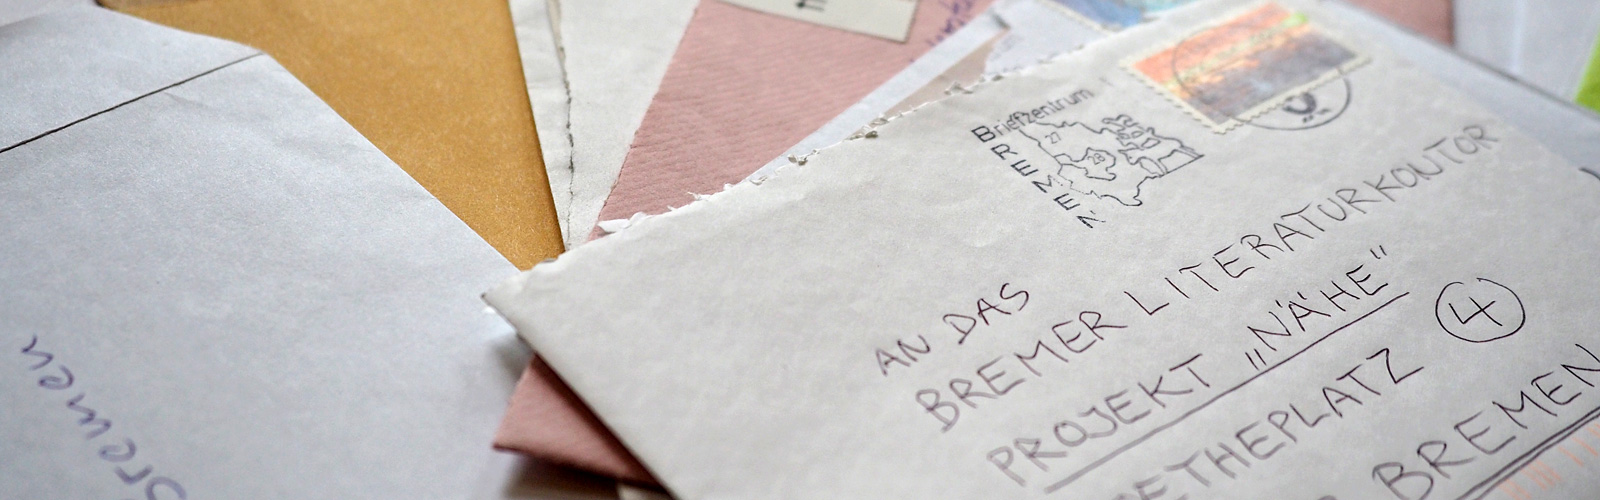 Briefzentrum
BREMEN
27
28
AN DAS
BREMER LITERATURKONTOR
PROJEKT „NÄHE“
ETHEPLATZ 4
BREMEN
Bremen